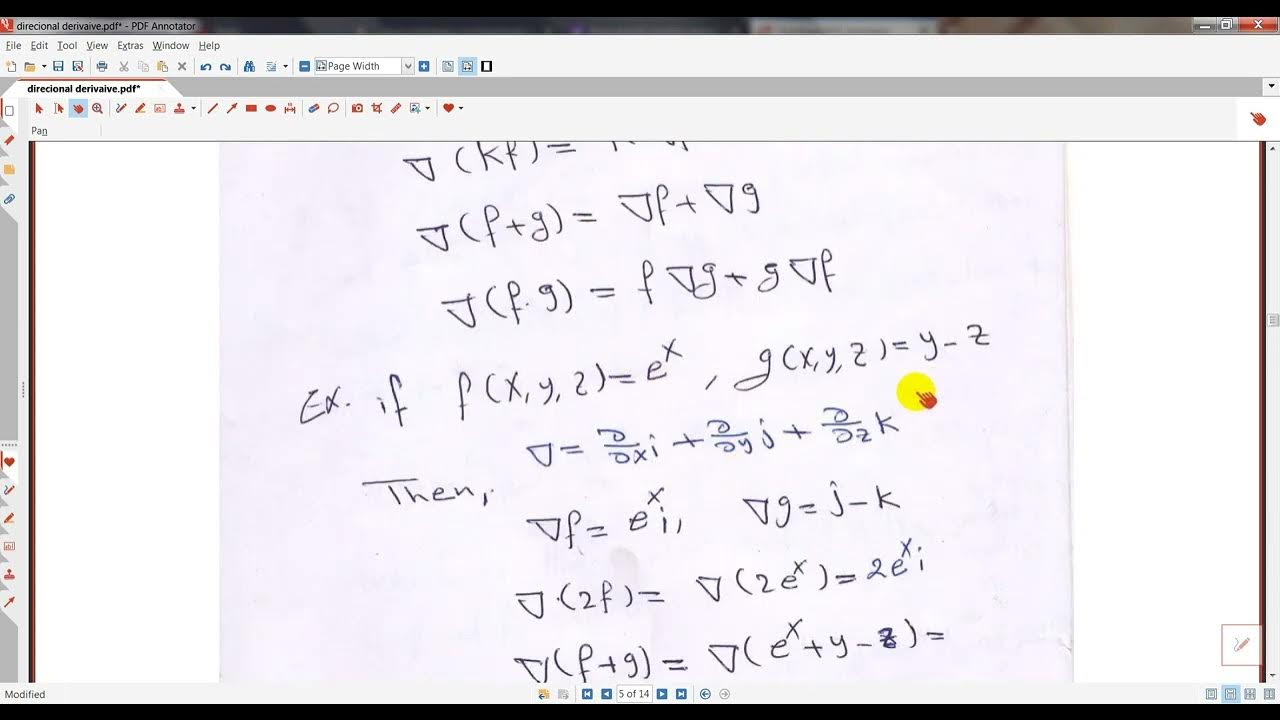 direcional derivaive.pdf* - PDF Annotator
File Edit Tool View Extras Window Help
Page Width
direcional derivaive.pdf*
Pan
∇(kf) =
∇(f+g) = ∇f + ∇g
∇(f·g) = f∇g + g∇f
Ex. if f(x,y,z) = e^x , g(x,y,z) = y - z
∇ = ∂/∂x i + ∂/∂y j + ∂/∂z k
Then,
∇f = e^x i, ∇g = j - k
∇·(2f) = ∇(2e^x) = 2e^x i
∇(f+g) = ∇(e^x + y - z) =
Modified
5 of 14